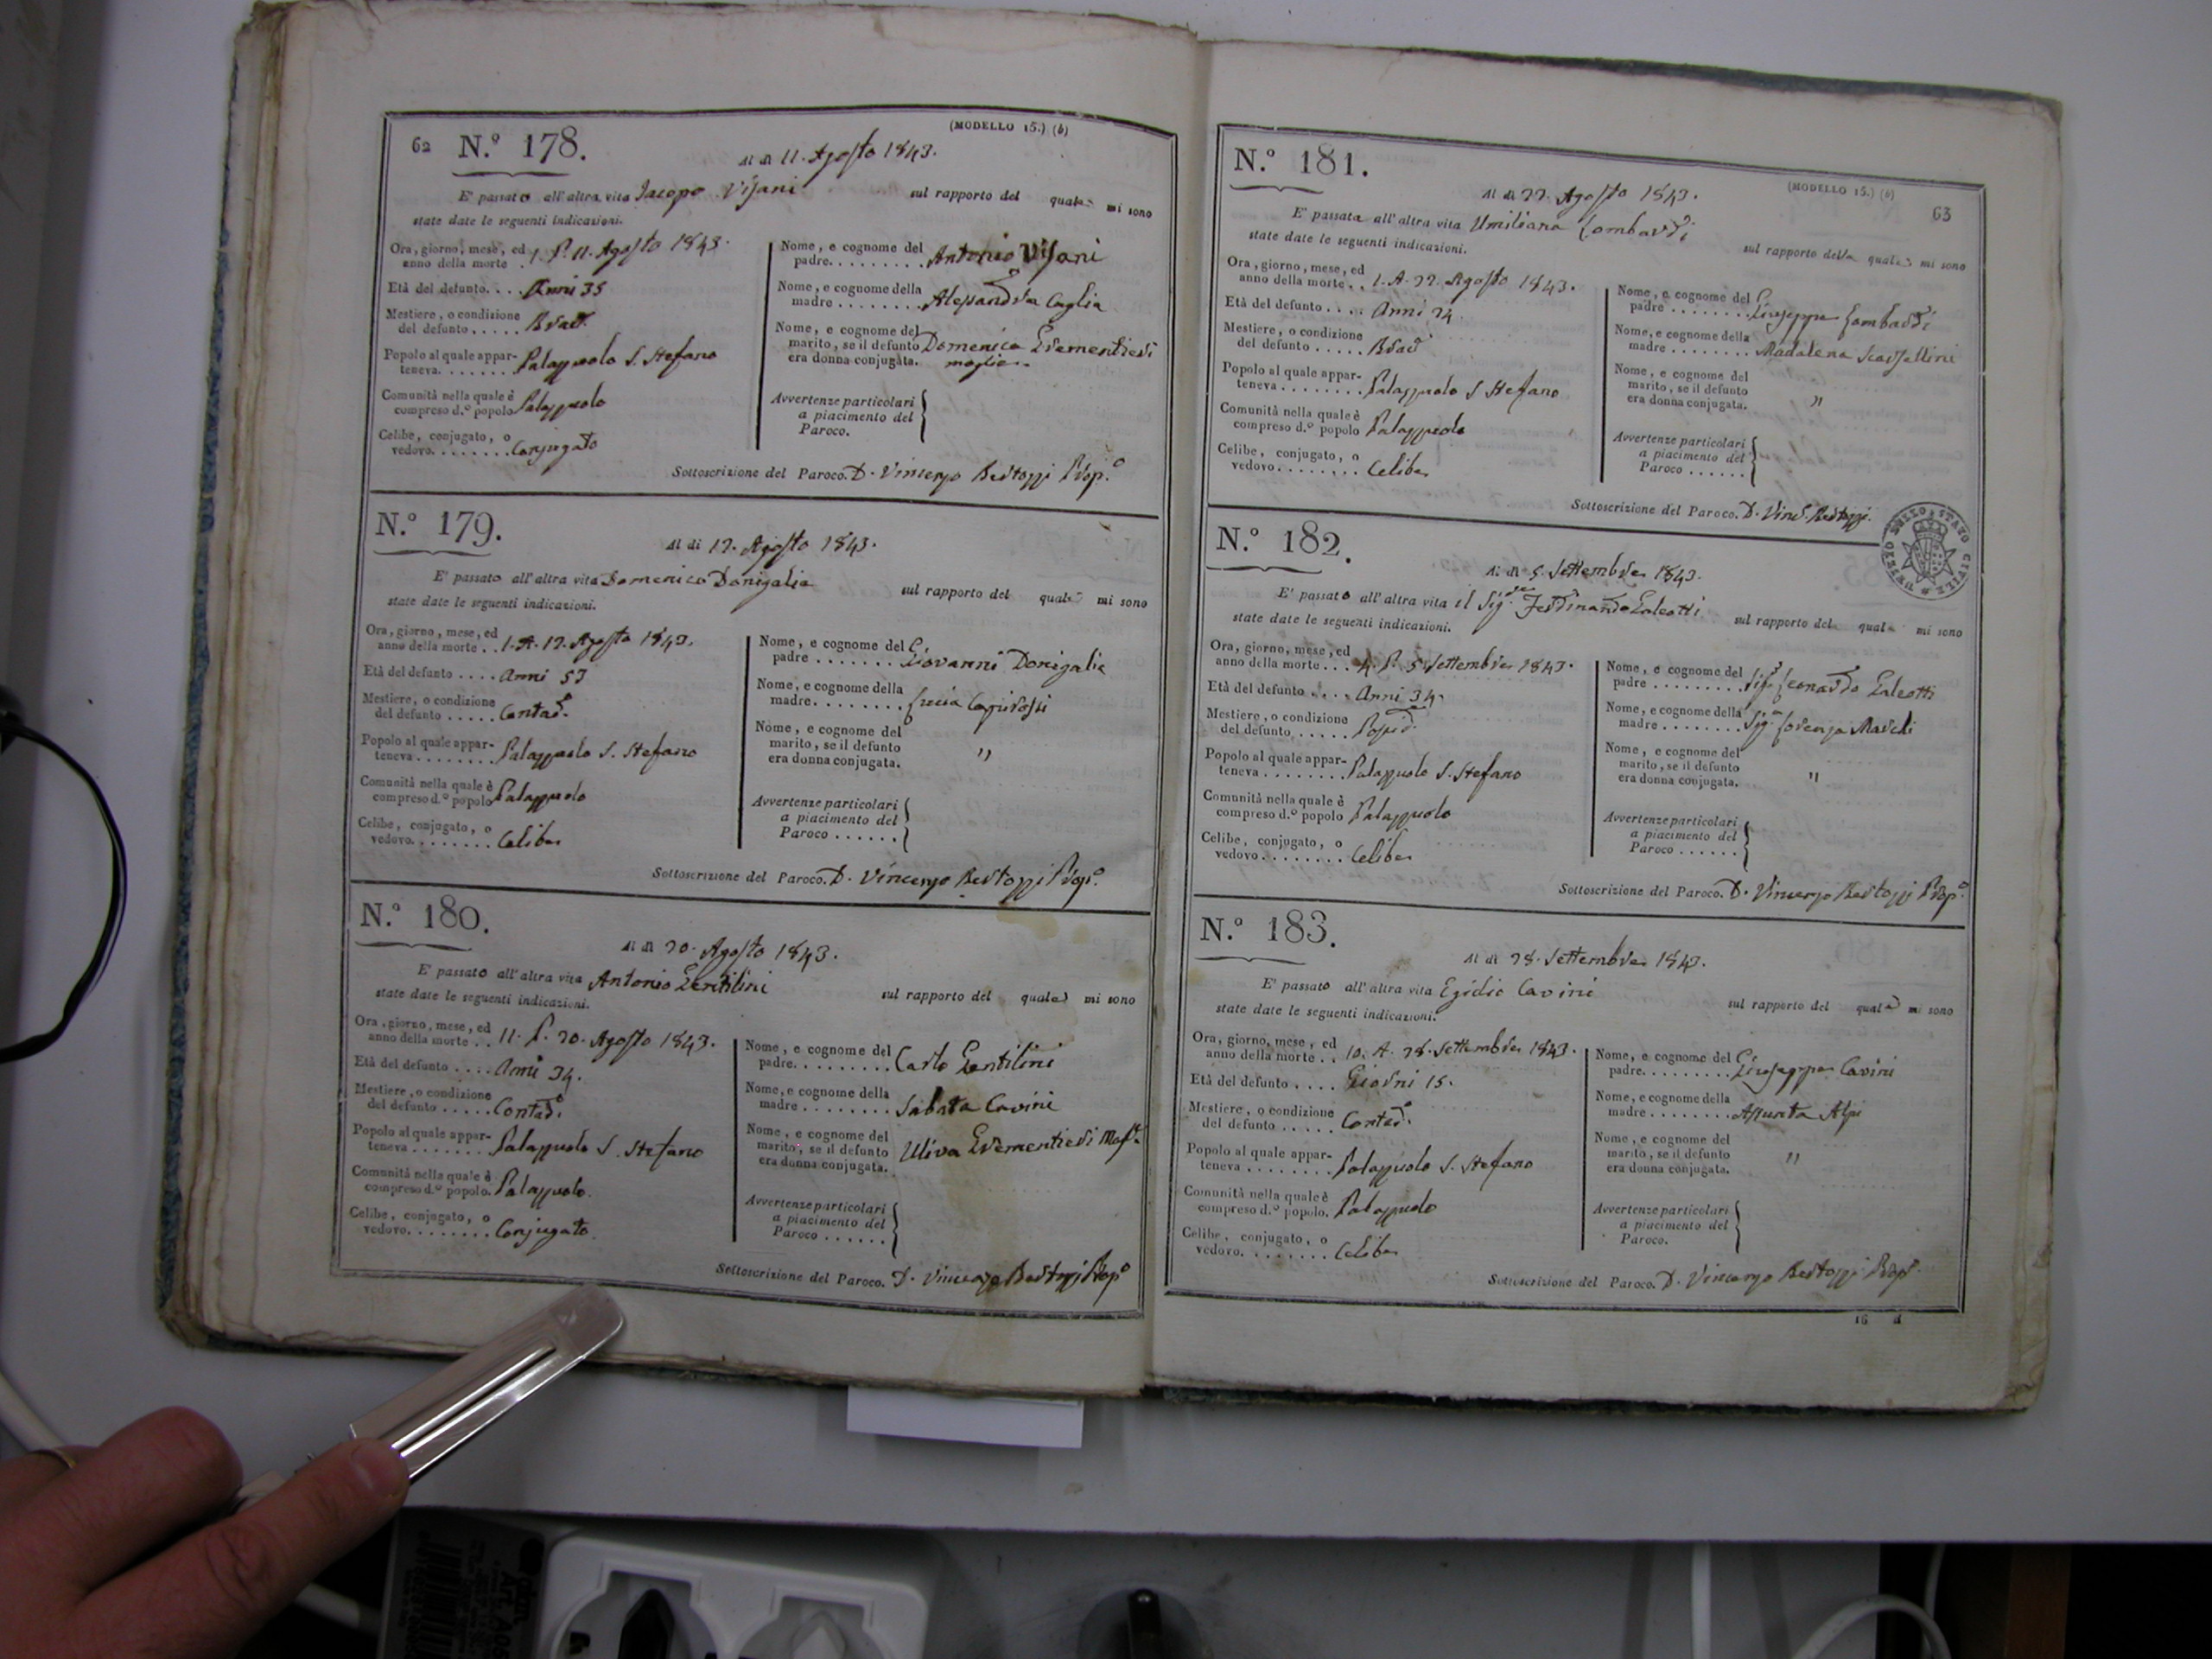 62 N.º 178. (MODELLO 15.) (b)
Al dì 11. Agosto 1843.
E' passato all'altra vita Jacopo Visani sul rapporto del quale mi sono
state date le seguenti indicazioni.
Ora, giorno, mese, ed
anno della morte . 1. P. 11. Agosto 1843.
Età del defunto. . . . Anni 35
Mestiere, o condizione
del defunto . . . . .
Popolo al quale appar-
teneva. . . . . . . . Palazzuolo S. Stefano
Comunità nella quale è
compreso d.º popolo Palazzuolo
Celibe, conjugato, o
vedovo. . . . . . . . Conjugato
Nome, e cognome del
padre. . . . . . . . . Antonio Visani
Nome, e cognome della
madre . . . . . . . . Alessandra
Nome, e cognome del
marito, se il defunto Domenica
era donna conjugata. moglie
Avvertenze particolari
a piacimento del
Paroco.
Sottoscrizione del Paroco. D. Vincenzo Bertozzi Prop.º
N.º 179.
Al dì 12. Agosto 1843.
E' passato all'altra vita Domenico Donigalia sul rapporto del quale mi sono
state date le seguenti indicazioni.
Ora, giorno, mese, ed
anno della morte . . 1. A. 12. Agosto 1843.
Età del defunto . . . . Anni
Mestiere, o condizione
del defunto . . . . . Contad.º
Popolo al quale appar-
teneva . . . . . . . . Palazzuolo S. Stefano
Comunità nella quale è
compreso d.º popolo Palazzuolo
Celibe, conjugato, o
vedovo. . . . . . . . Celibe
Nome, e cognome del
padre . . . . . . . Giovanni Donigalia
Nome, e cognome della
madre. . . . . . . . Lucia
Nome, e cognome del
marito, se il defunto "
era donna conjugata.
Avvertenze particolari
a piacimento del
Paroco . . . . . .
Sottoscrizione del Paroco. D. Vincenzo Bertozzi Prop.º
N.º 180.
Al dì 20. Agosto 1843.
E' passato all'altra vita Antonio Gentilini sul rapporto del quale mi sono
state date le seguenti indicazioni.
Ora, giorno, mese, ed
anno della morte . . 11. P. 20. Agosto 1843.
Età del defunto . . . . Anni 34.
Mestiere, o condizione
del defunto . . . . . Contad.º
Popolo al quale appar-
teneva . . . . . . . . Palazzuolo S. Stefano
Comunità nella quale è
compreso d.º popolo. Palazzuolo.
Celibe, conjugato, o
vedovo. . . . . . . . Conjugato.
Nome, e cognome del
padre. . . . . . . . . Carlo Gentilini
Nome, e cognome della
madre . . . . . . . . Sabata Cavini
Nome, e cognome del
marito, se il defunto Uliva
era donna conjugata.
Avvertenze particolari
a piacimento del
Paroco . . . . . .
Sottoscrizione del Paroco. D. Vincenzo Bertozzi Prop.º
N.º 181. (MODELLO 15.) (b)
63
Al dì 22. Agosto 1843.
E' passata all'altra vita Umiliana Lombardi sul rapporto della quale mi sono
state date le seguenti indicazioni.
Ora, giorno, mese, ed
anno della morte . . 1. A. 22. Agosto 1843.
Età del defunto . . . . Anni 24.
Mestiere, o condizione
del defunto . . . . .
Popolo al quale appar-
teneva . . . . . . . . Palazzuolo S Stefano
Comunità nella quale è
compreso d.º popolo Palazzuolo
Celibe, conjugato, o
vedovo. . . . . . . . Celibe
Nome, e cognome del
padre . . . . . . . . Giuseppe Lombardi
Nome, e cognome della
madre . . . . . . . . Madalena
Nome, e cognome del
marito, se il defunto "
era donna conjugata.
Avvertenze particolari
a piacimento del
Paroco . . . . . .
Sottoscrizione del Paroco. D. Vinc.º Bertozzi.
UFFIZIO DELLO STATO CIVILE
N.º 182.
Al dì 5. Settembre 1843.
E' passato all'altra vita il Sig.re Ferdinando Galeotti sul rapporto del quale mi sono
state date le seguenti indicazioni.
Ora, giorno, mese, ed
anno della morte . . . 4. P. 5. Settembre 1843.
Età del defunto . . . . Anni 34.
Mestiere, o condizione
del defunto . . . . . Possid.
Popolo al quale appar-
teneva . . . . . . . . Palazzuolo S. Stefano
Comunità nella quale è
compreso d.º popolo Palazzuolo
Celibe, conjugato, o
vedovo . . . . . . . . Celibe
Nome, e cognome del
padre . . . . . . . . . Sig.r Leonardo Galeotti
Nome, e cognome della
madre . . . . . . . . Sig.ª Lorenza
Nome, e cognome del
marito, se il defunto "
era donna conjugata.
Avvertenze particolari
a piacimento del
Paroco . . . . . .
Sottoscrizione del Paroco. D. Vincenzo Bertozzi Prop.º
N.º 183.
Al dì 28. Settembre 1843.
E' passato all'altra vita Egidio Cavini sul rapporto del quale mi sono
state date le seguenti indicazioni.
Ora, giorno, mese, ed
anno della morte . . 10. A. 28. Settembre 1843.
Età del defunto . . . . Giorni 15.
Mestiere, o condizione
del defunto . . . . . Contad.º
Popolo al quale appar-
teneva . . . . . . . . Palazzuolo S. Stefano
Comunità nella quale è
compreso d.º popolo. Palazzuolo
Celibe, conjugato, o
vedovo. . . . . . . . Celibe
Nome, e cognome del
padre. . . . . . . . . Giuseppe Cavini
Nome, e cognome della
madre . . . . . . . . Assunta Alpi
Nome, e cognome del
marito, se il defunto "
era donna conjugata.
Avvertenze particolari
a piacimento del
Paroco.
Sottoscrizione del Paroco. D. Vincenzo Bertozzi Prop.º
16 d